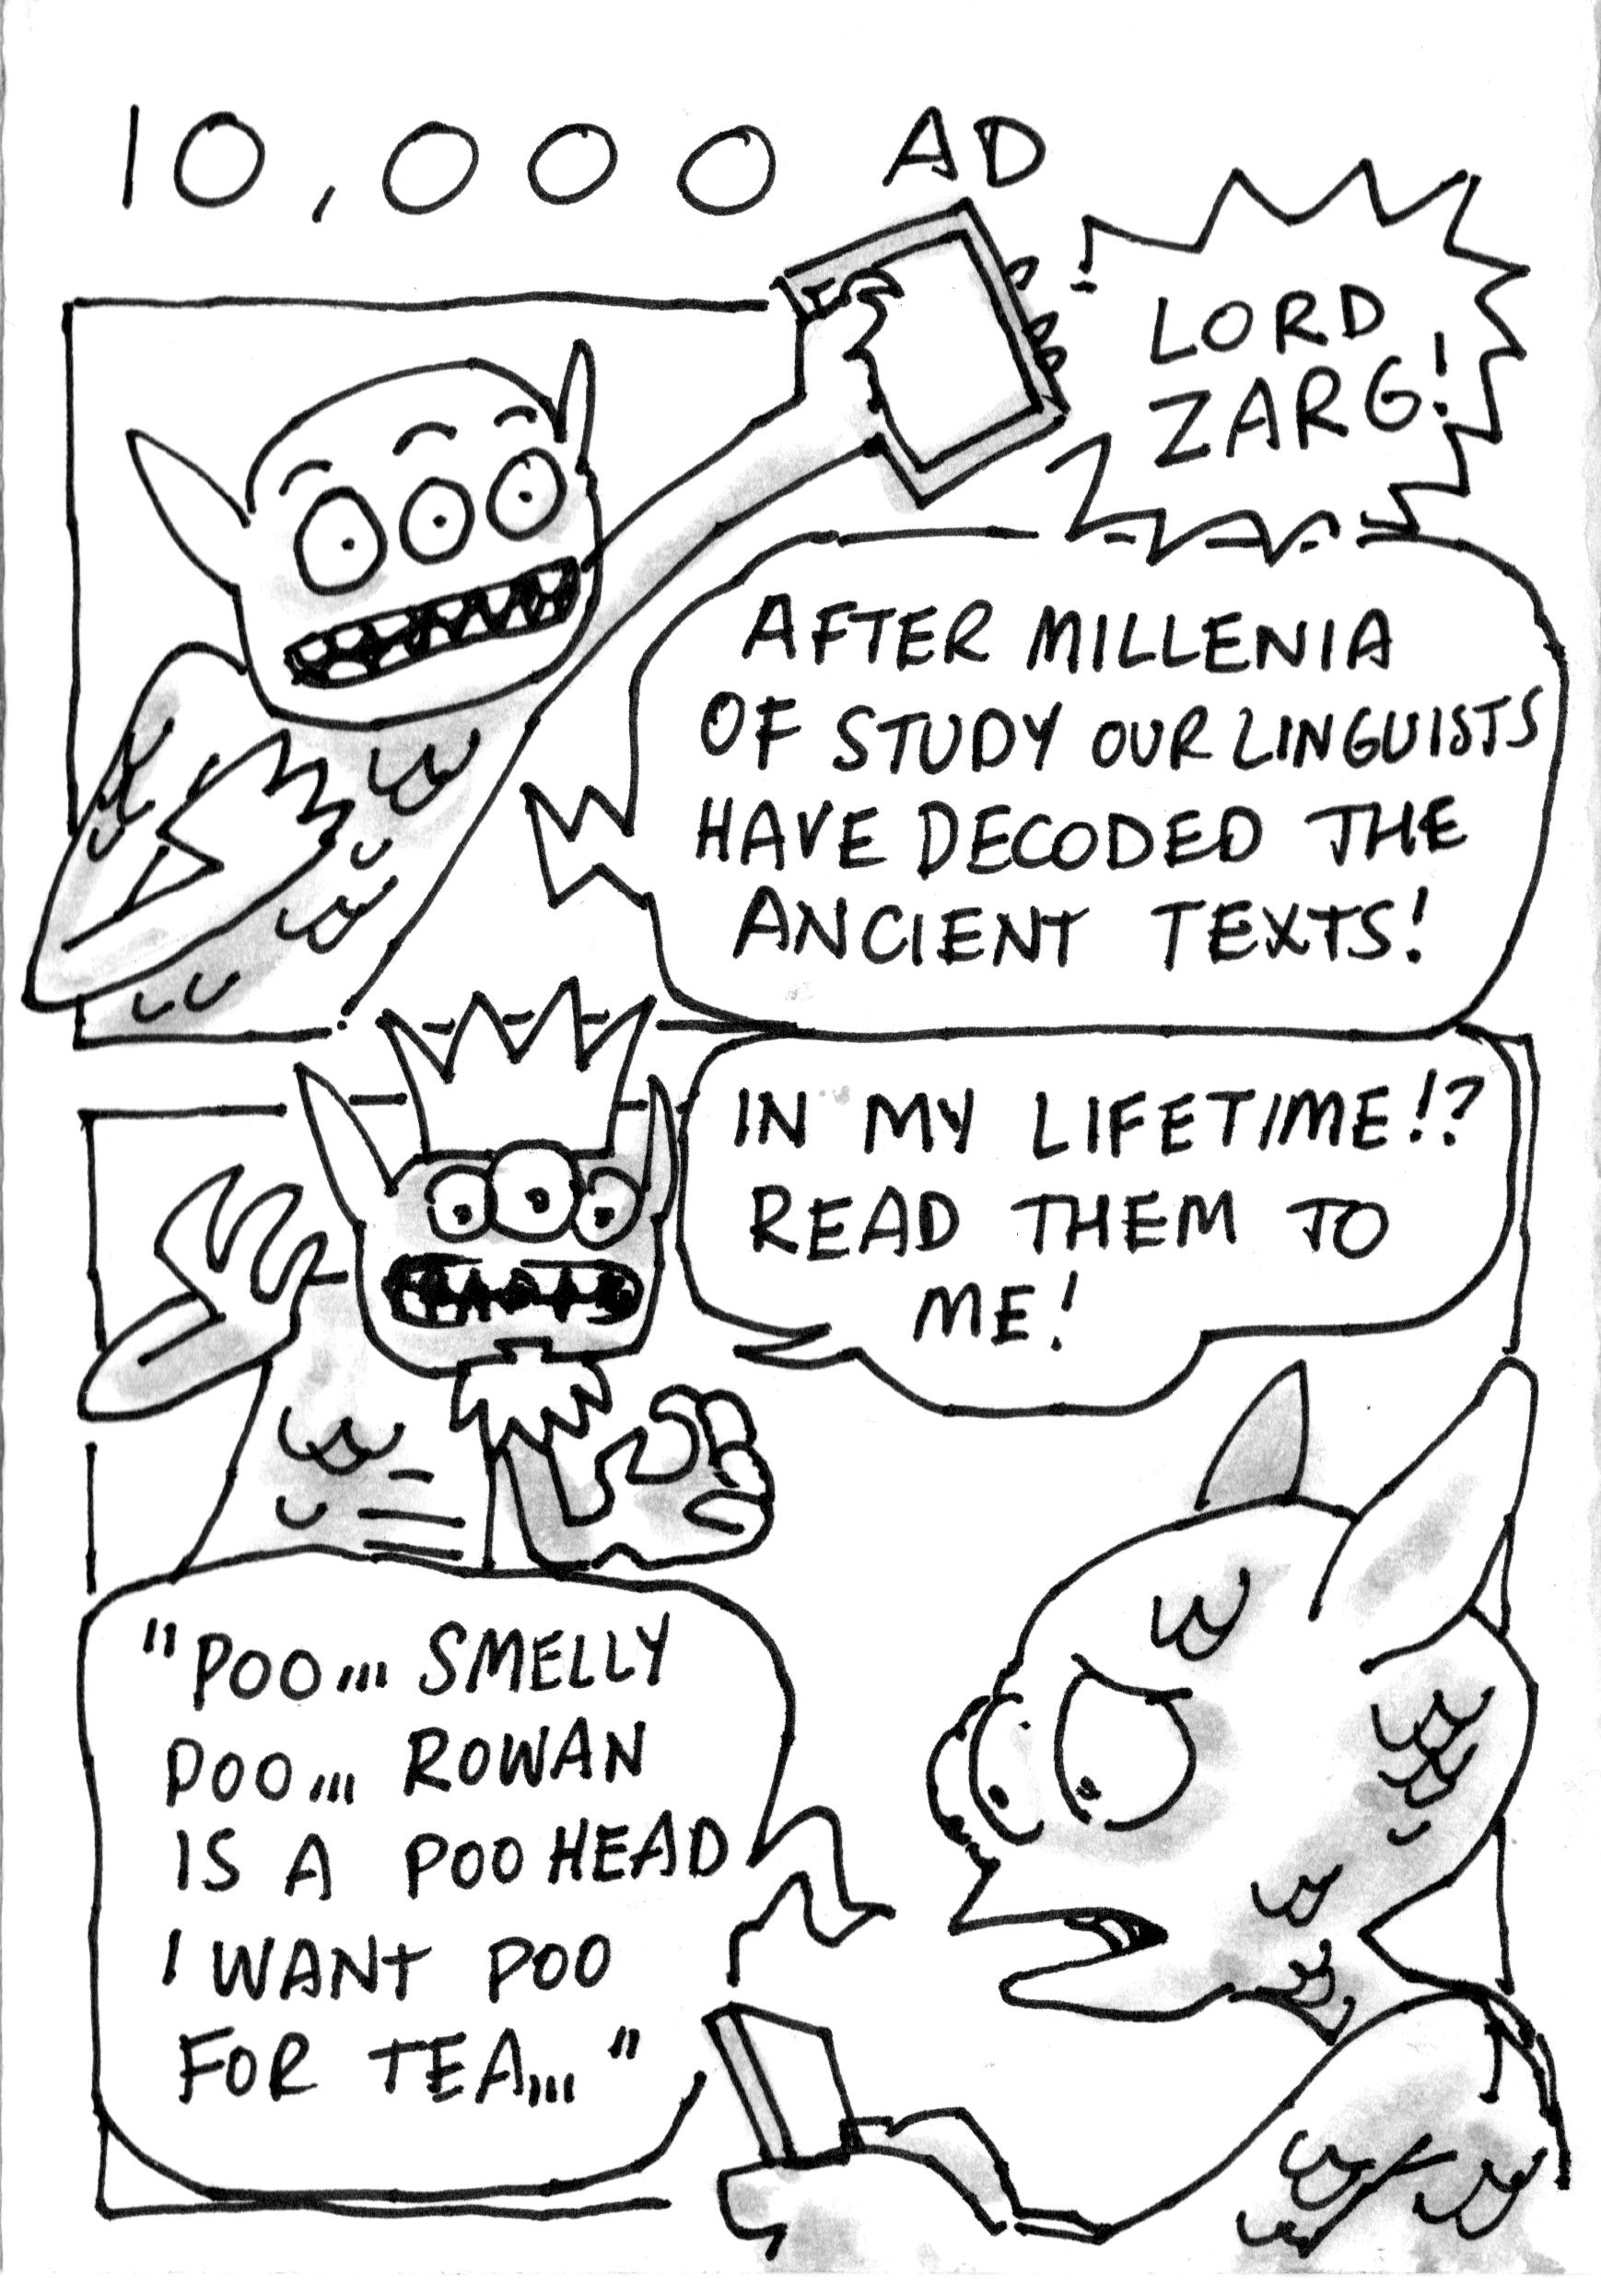 10,000 AD
LORD
ZARG!
AFTER MILLENIA
OF STUDY OUR LINGUISTS
HAVE DECODED THE
ANCIENT TEXTS!
IN MY LIFETIME!?
READ THEM TO
ME!
"POO... SMELLY
POO... ROWAN
IS A POO HEAD
I WANT POO
FOR TEA..."